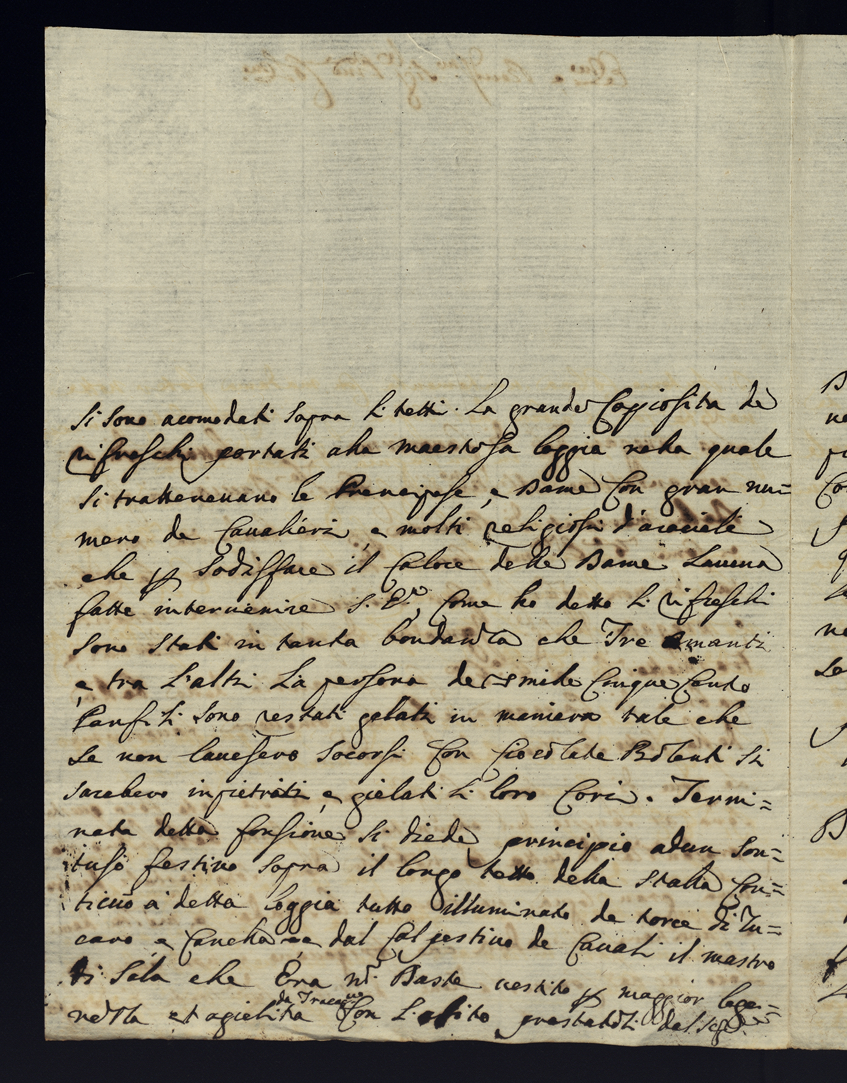 si sono acomodati sopra li tetti. La grande Coppiosita de
rifreschi portati alla maestosa loggia nella quale
si trattenevano le Prencipese, e Dame Con gran nu=
mero de Cavalieri, e molti religiosi
che p sodisffare il Calore delle Dame Laveva
fatte intervenire S. E. Come ho detto Li rifreschi
sono stati in tanta bondanza che Tre amanti
e tra L'altri La persona de Cinque Cento
Panfili sono restati gelati in maniera tale che
se non lavesero socorsi Con Ciocolate Bolenti si
sarebero inpietriti, e gielati Li loro Cori. Termi=
nata detta fonsione si diede principio adun son=
tuso festino sopra il longo tetto della stalla Con=
ticuo a detta loggia tutto illuminato de torce di Zu=
caro e Canella e dal Calpestino de Cavali il mastro
di Sala che Era Baste vestito p maggior lege=
rezza et agielita da Tracagno Con L'abito prestatoli dal Sig.